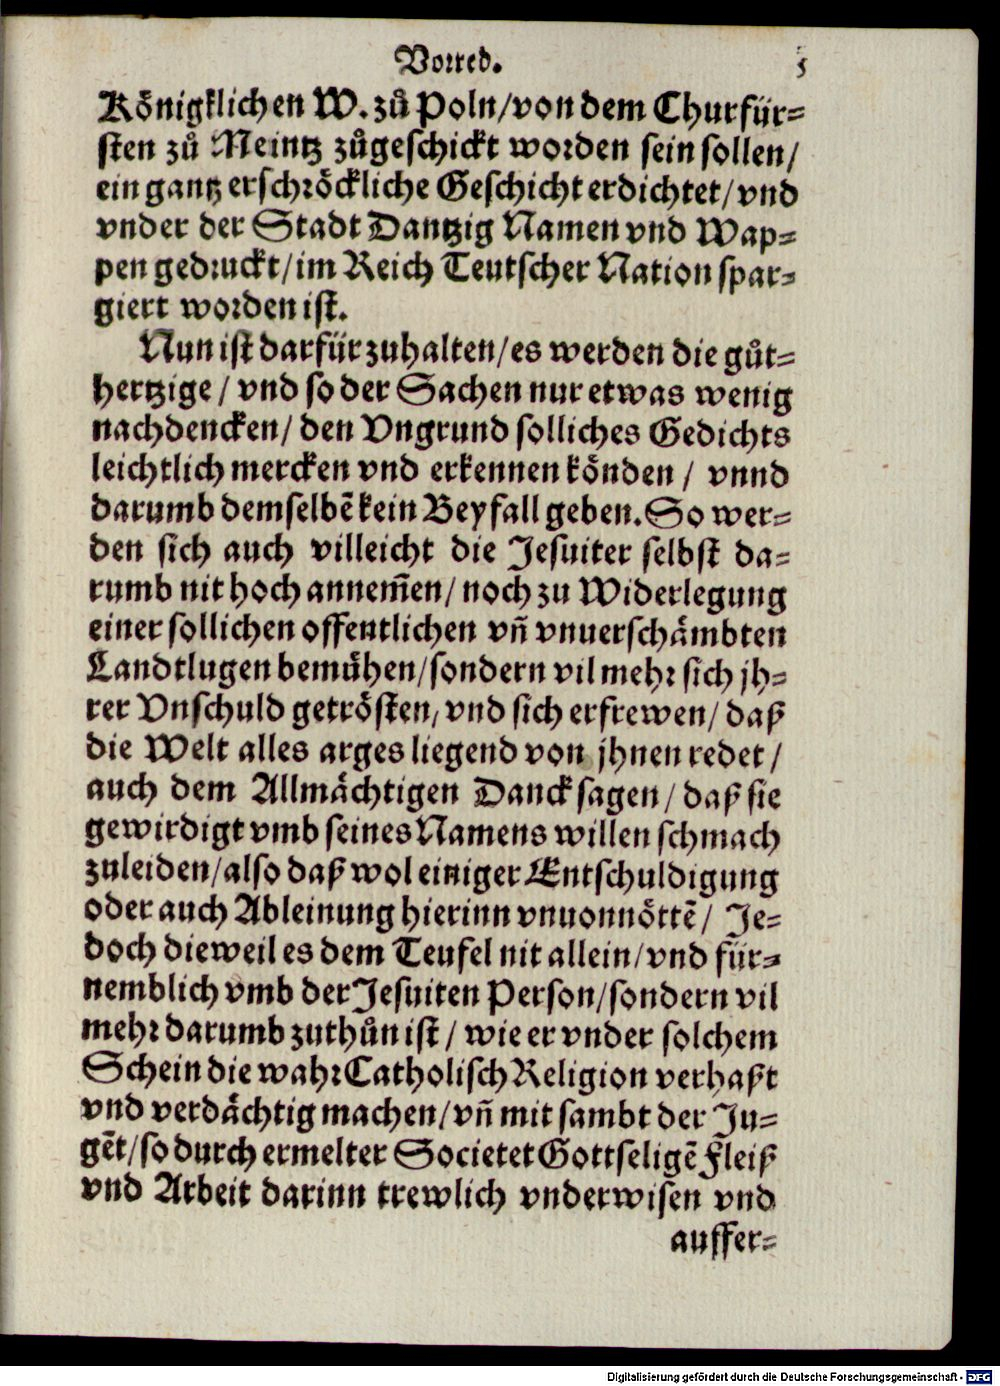 Vorred. 5
Königklichen W. zů Poln/von dem Churfür-
sten zů Meintz zůgeschickt worden sein sollen/
ein gantz erschröckliche Geschicht erdichtet/vnd
vnder der Stadt Dantzig Namen vnd Wap-
pen gedruckt/im Reich Teutscher Nation spar-
giert worden ist.
Nun ist darfür zuhalten/es werden die gůt-
hertzige/ vnd so der Sachen nur etwas wenig
nachdencken/ den Vngrund solliches Gedichts
leichtlich mercken vnd erkennen könden/ vnnd
darumb demselbē kein Beyfall geben. So wer-
den sich auch villeicht die Jesuiter selbst da-
rumb nit hoch annem̄en/ noch zu Widerlegung
einer sollichen offentlichen vn̄ vnuerschämbten
Landtlugen bemühen/sondern vil mehr sich jh-
rer Vnschuld getrösten/vnd sich erfrewen/ daß
die Welt alles arges liegend von jhnen redet/
auch dem Allmächtigen Danck sagen/ daß sie
gewirdigt vmb seines Namens willen schmach
zuleiden/also daß wol einiger Entschuldigung
oder auch Ableinung hierinn vnuonnöttē/ Je-
doch dieweil es dem Teufel nit allein/vnd für-
nemblich vmb der Jesuiten Person/sondern vil
mehr darumb zuthůn ist/ wie er vnder solchem
Schein die wahr Catholisch Religion verhaßt
vnd verdächtig machen/vn̄ mit sambt der Ju-
gēt/so durch ermelter Societet Gottseligē Fleiß
vnd Arbeit darinn trewlich vnderwisen vnd
auffer-
Digitalisierung gefördert durch die Deutsche Forschungsgemeinschaft - DFG